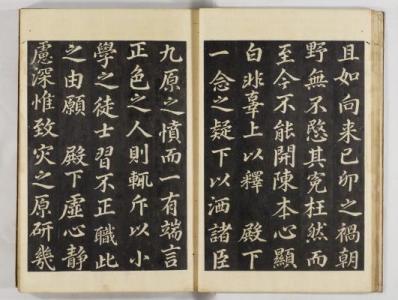 且如向来已卯之禍朝
野無不愍其寃枉然而
至今不能開陳本心顯
白非辜上以釋 殿下
一念之疑下以洒諸臣
九原之憤而一有端言
正色之人則輒斥以小
學之徒士習不正職此
之由願 殿下虛心靜
慮深惟致灾之原研幾